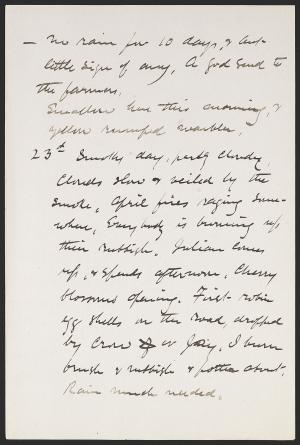 — No rain for 10 days, & but
little sign of any, A god send to
the farmers.
Swallow here this morning, &
yellow rumped warbler.
23d Smoky day, partly cloudy,
Clouds slow & veiled by the
smoke, April fires raging some-
where, Everybody is burning up
their rubbish. Julian comes
up, & spends afternoon, Cherry
blossoms opening. First robin
egg shells on the road, dropped
by Crow or Jay, I burn
brush & rubbish & potter about.
Rain much needed.